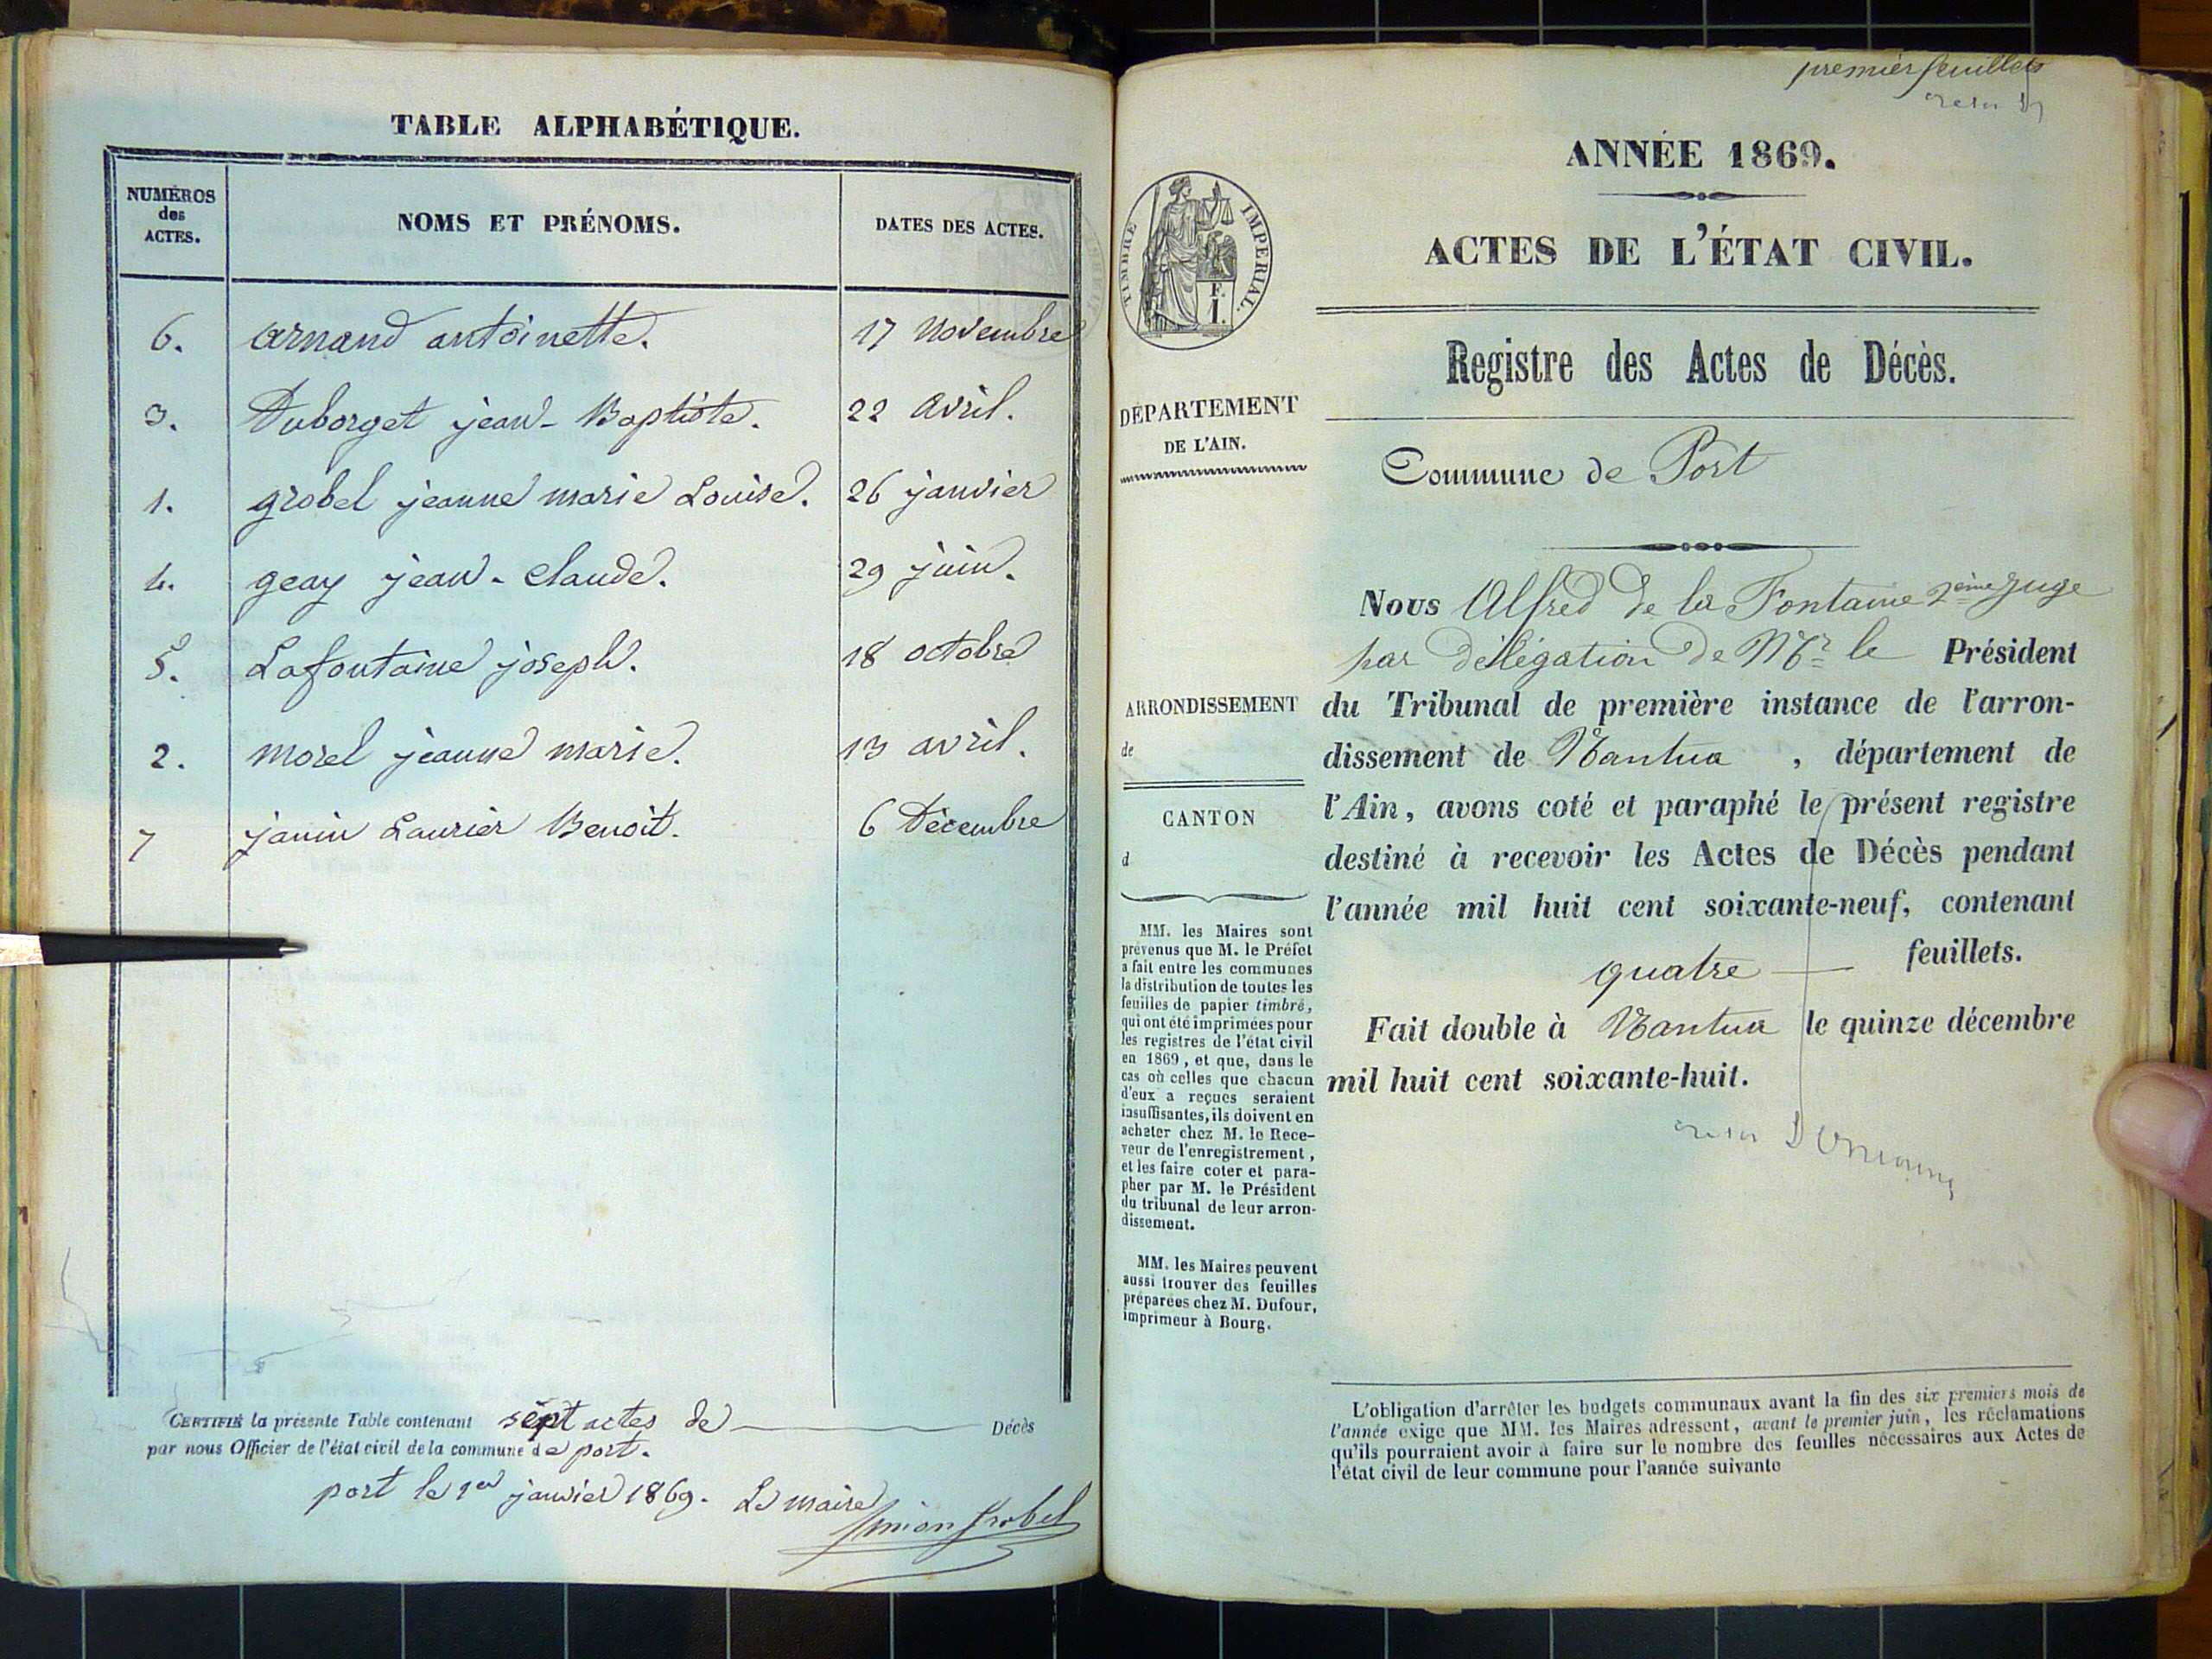 TABLE ALPHABÉTIQUE.
NUMÉROS des ACTES. NOMS ET PRÉNOMS. DATES DES ACTES.
6. arnand antoinette. 17 novembre
3. Duborget jean-Baptiste. 22 avril.
1. grobel jeanne marie Louise. 26 janvier
4. geay jean-claude. 29 juin.
5. Lafontaine joseph. 18 octobre
2. morel jeanne marie. 13 avril.
7 janin Laurier Benoit. 6 Décembre
CERTIFIÉ la présente Table contenant sept actes de Décès
par nous Officier de l'état civil de la commune de port.
port le 1er janvier 1869. Le maire
premier feuillet
ANNÉE 1869.
ACTES DE L'ÉTAT CIVIL.
TIMBRE IMPERIAL.
Registre des Actes de Décès.
DÉPARTEMENT
DE L'AIN.
Commune de Port
Nous Alfred de la Fontaine 2ème juge
par délégation de Mr le Président
ARRONDISSEMENT
de
CANTON
d
du Tribunal de première instance de l'arron-
dissement de Nantua, département de
l'Ain, avons coté et paraphé le présent registre
destiné à recevoir les Actes de Décès pendant
l'année mil huit cent soixante-neuf, contenant
quatre feuillets.
Fait double à Nantua le quinze décembre
mil huit cent soixante-huit.
MM. les Maires sont
prévenus que M. le Préfet
a fait entre les communes
la distribution de toutes les
feuilles de papier timbré,
qui ont été imprimées pour
les registres de l'état civil
en 1869, et que, dans le
cas où celles que chacun
d'eux a reçues seraient
insuffisantes, ils doivent en
acheter chez M. le Rece-
veur de l'enregistrement,
et les faire coter et para-
pher par M. le Président
du tribunal de leur arron-
dissement.
MM. les Maires peuvent
aussi trouver des feuilles
préparées chez M. Dufour,
imprimeur à Bourg.
L'obligation d'arrêter les budgets communaux avant la fin des six premiers mois de
l'année exige que MM. les Maires adressent, avant le premier juin, les réclamations
qu'ils pourraient avoir à faire sur le nombre des feuilles nécessaires aux Actes de
l'état civil de leur commune pour l'année suivante